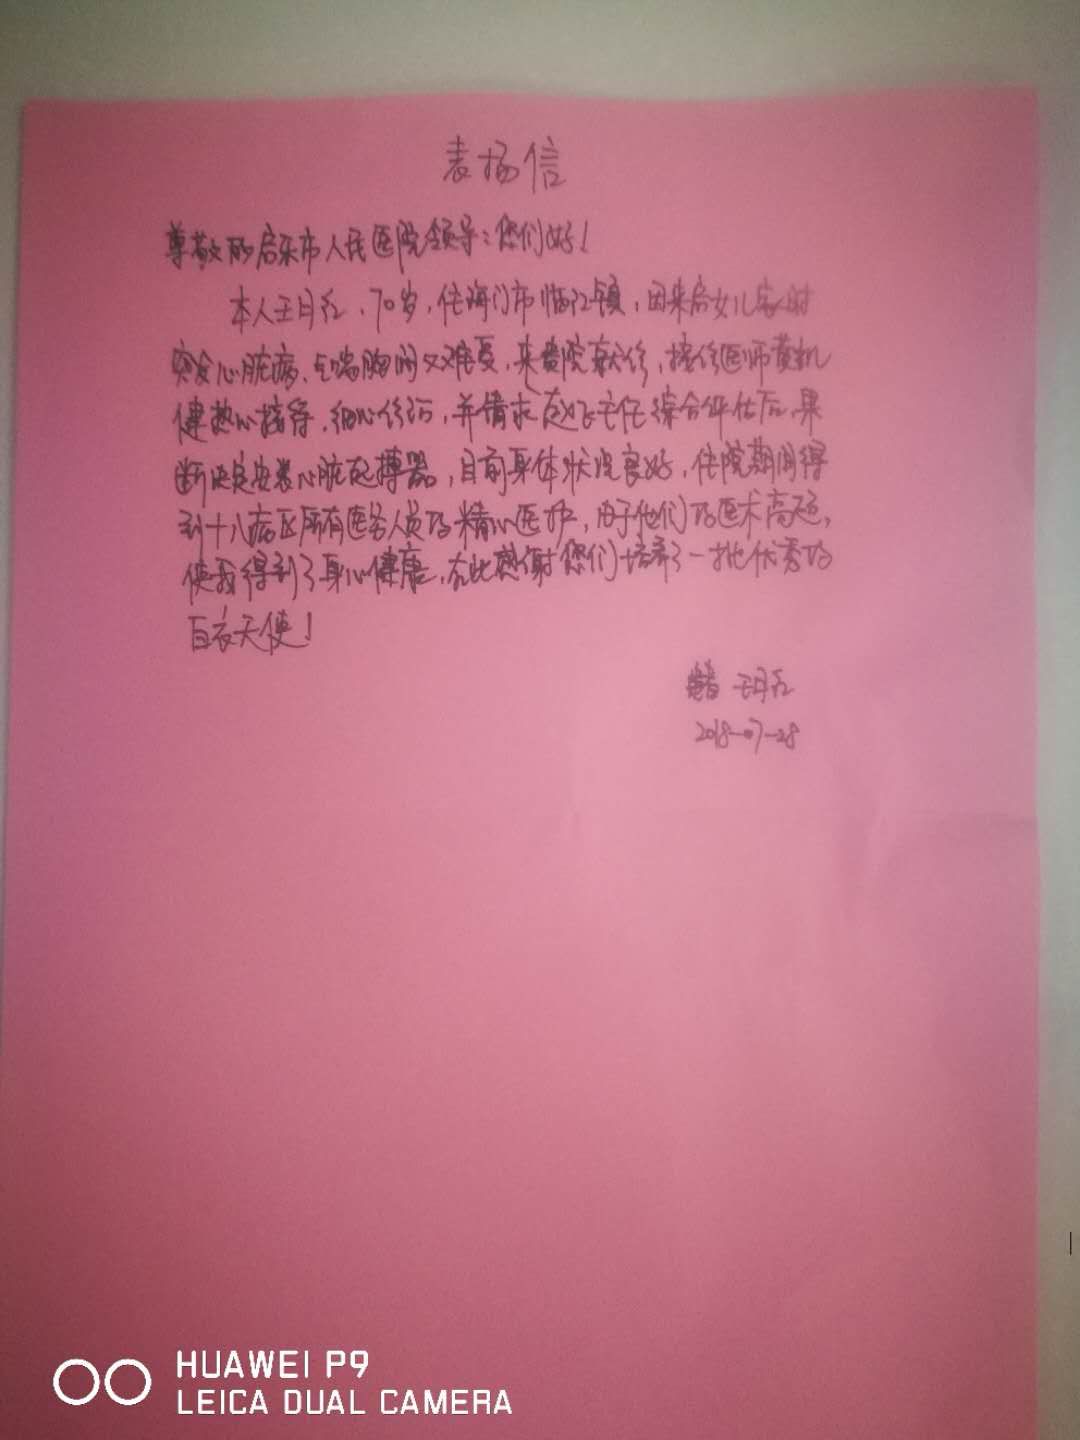 表扬信
尊敬的启东市人民医院领导：您们好！
本人王月红，70岁，住海门市临江镇，因来启女儿家时
突发心脏病、气喘胸闷又难受，来贵院就诊，接诊医师黄机
健热心接待，细心诊治，并请求赵飞主任综合评估后，果
断决定安装心脏起搏器，目前身体状况良好，住院期间得
到十八病区所有医务人员的精心医护，由于他们的医术高超，
使我得到了身心健康，在此感谢您们培养了一批优秀的
白衣天使！
患者 王月红
2018-07-28
HUAWEI P9
LEICA DUAL CAMERA